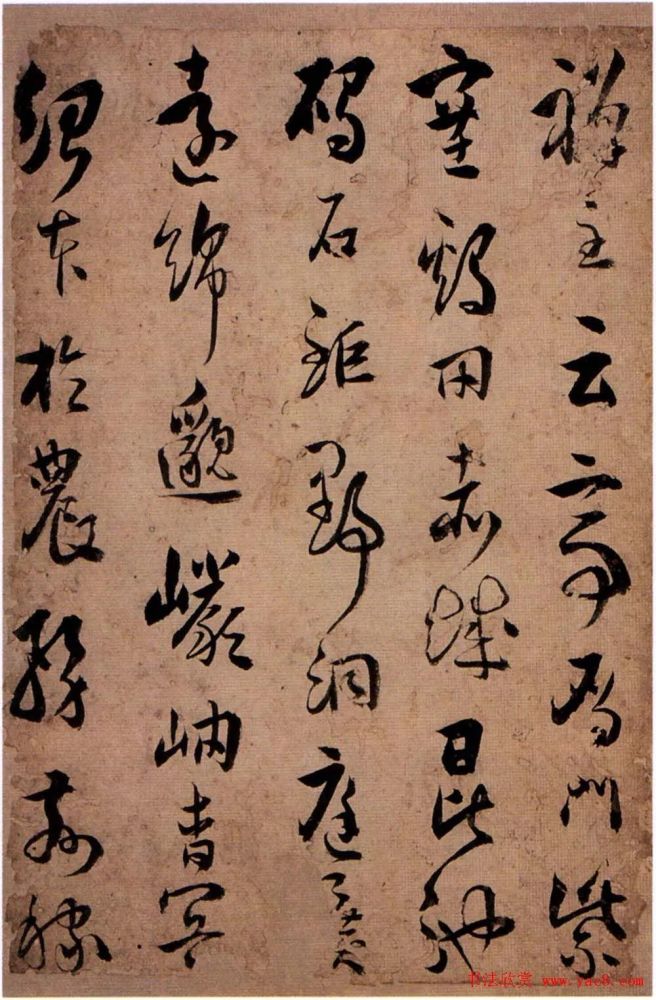 禪主云亭鴈門紫
塞鷄田赤城昆池
碣石鉅野洞庭曠
遠綿邈巖岫杳冥
本於農務茲稼
书法欣赏 www.yac8.com